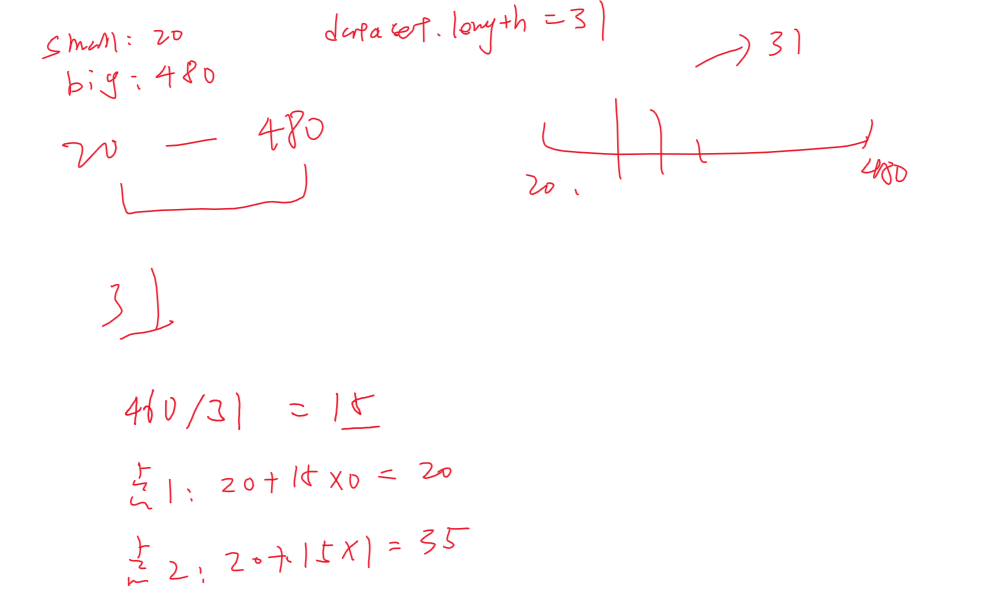 small: 20
big: 480
dataset.length = 31
20 — 480
31
20
480
31
460/31 = 15
点1: 20+15×0 = 20
点2: 20+15×1 = 35